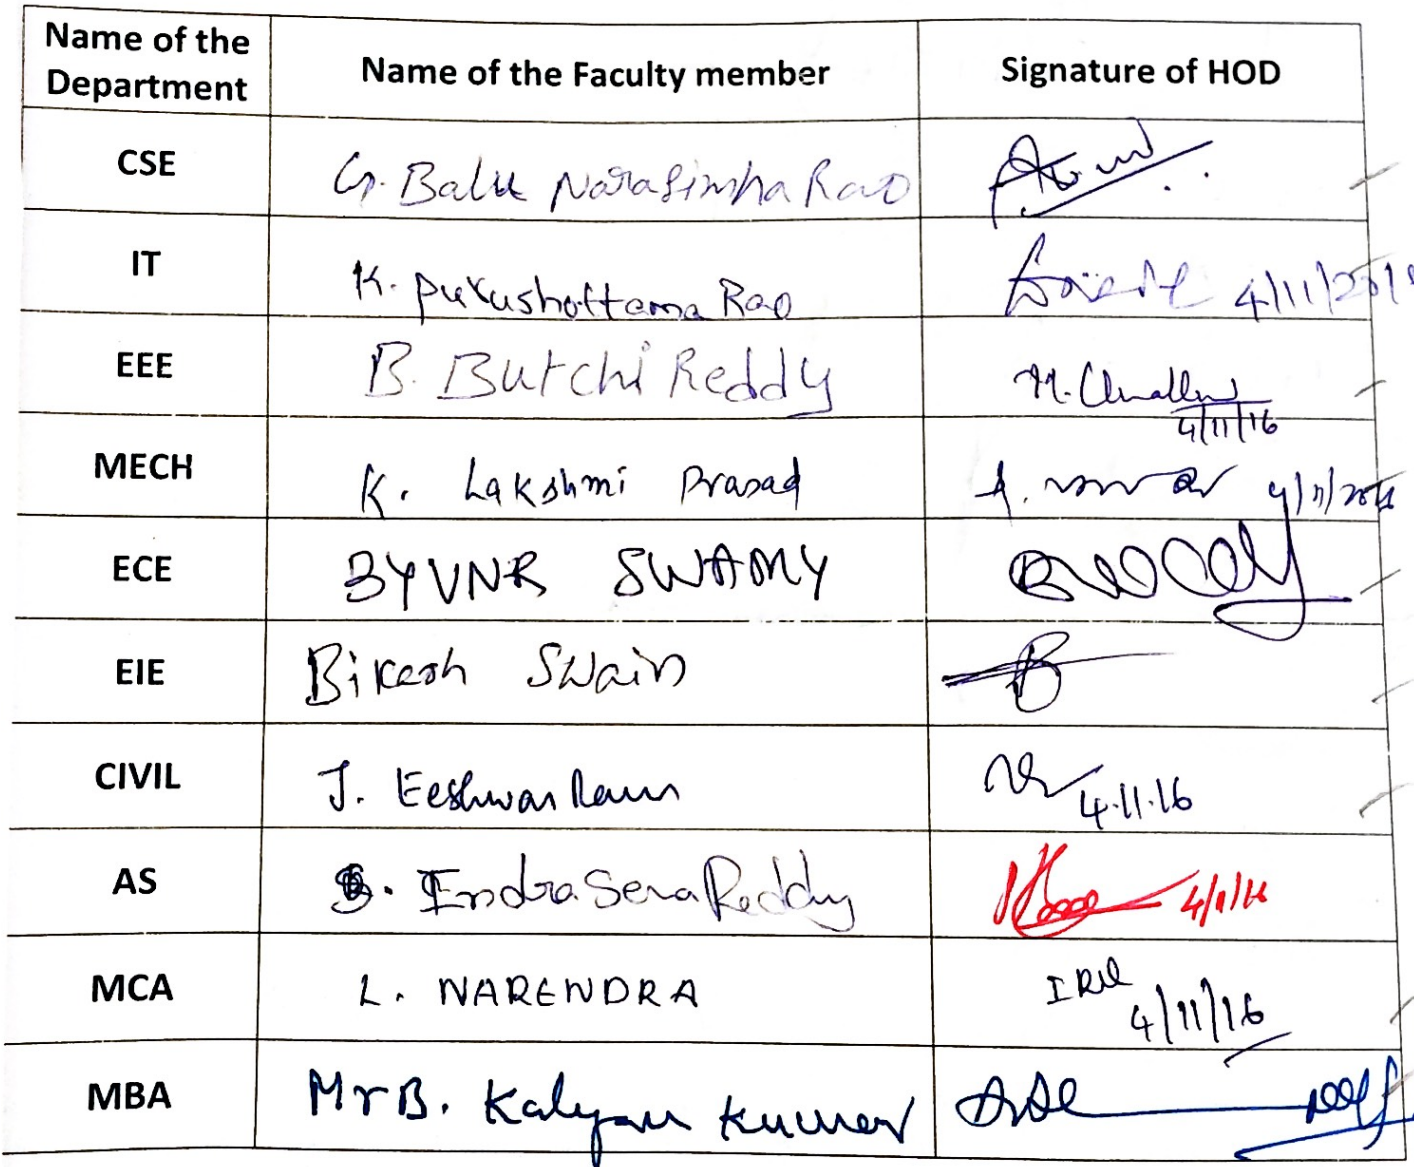 Name of the
Department
Name of the Faculty member
Signature of HOD
CSE
G. Balu Narasimha Rao
IT
K. Purushottama Rao
4/11/201
EEE
B. Butchi Reddy
4/11/16
MECH
K. Lakshmi Prasad
ECE
BYVNR SWAMY
EIE
Bikash Swain
CIVIL
J. Eeshwar Ram
4.11.16
AS
IndraSenaReddy
MCA
L. NARENDRA
4/11/16
MBA
Mr B. Kalyan Kumar